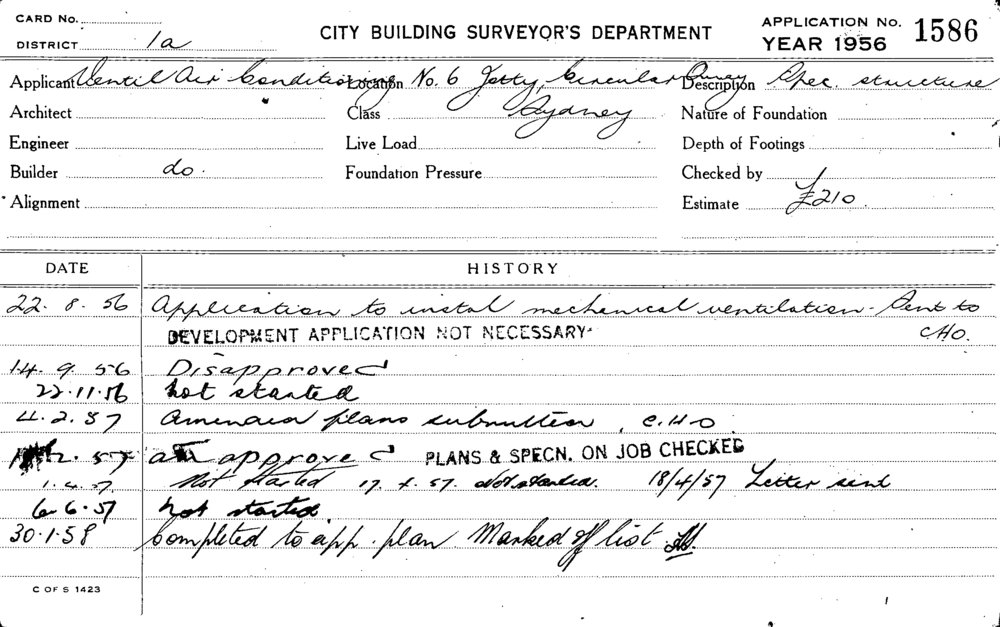 CARD No.
DISTRICT 1a
CITY BUILDING SURVEYOR'S DEPARTMENT
APPLICATION No. 1586
YEAR 1956
Applicant Ventil Air Conditioning Location No. 6 Jetty, Circular Quay Description Spec. structure
Architect Class Sydney Nature of Foundation
Engineer Live Load Depth of Footings
Builder do. Foundation Pressure Checked by
Alignment Estimate £210
DATE HISTORY
22.8.56 Application to instal mechanical ventilation - Sent to
DEVELOPMENT APPLICATION NOT NECESSARY CHO.
14.9.56 Disapproved
22.11.56 not started
4.2.57 Amended plans submitted, C.H.O
2.57 approved PLANS & SPECN. ON JOB CHECKED
1.4.57 Not started 17. 57. Not started. 18/4/57 Letter sent
6.6.57 not started
30.1.58 Completed to app. plan. Marked off list.
C OF S 1423